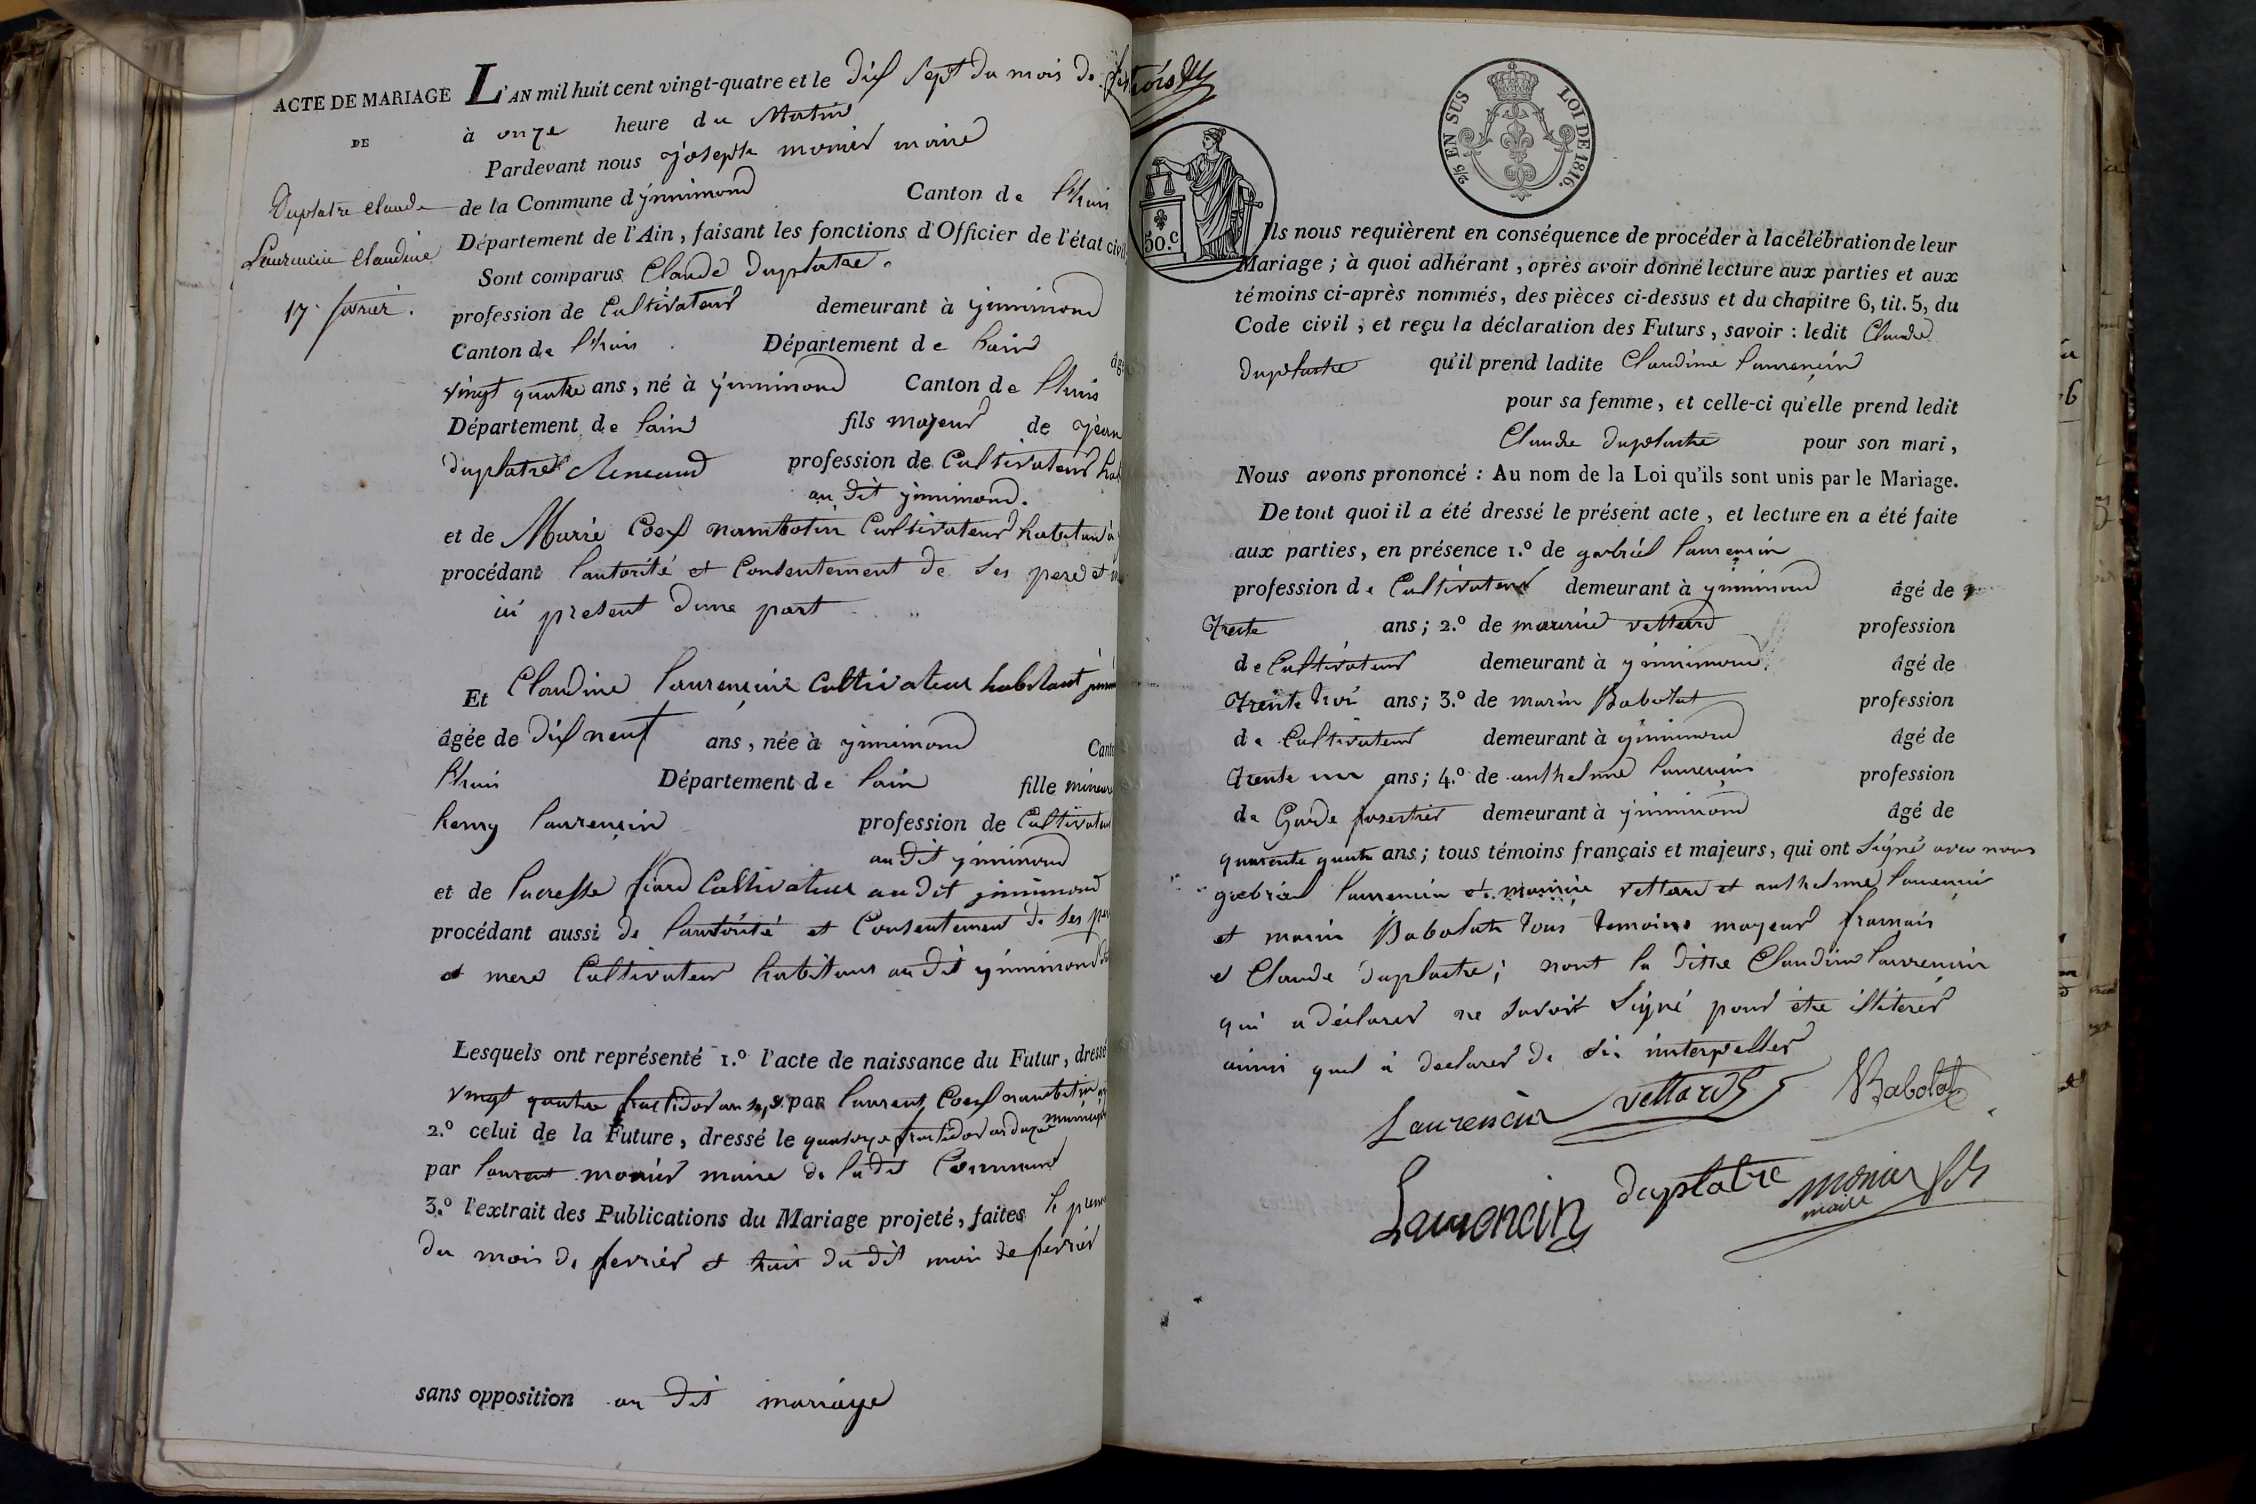 ACTE DE MARIAGE
DE
Duplatre Claude
Laurencin Claudine
17 fevrier.
L'AN mil huit cent vingt-quatre et le dix sept du mois de
à onze heure du Matin
Pardevant nous joseph monier maire
de la Commune d'ynnimond Canton de l'huis
Département de l'Ain, faisant les fonctions d'Officier de l'état civil
Sont comparus Claude Duplatre.
profession de Cultivateur demeurant à ynnimond
Canton de l'huis Département de lain âgé
vingt quatre ans, né à ynnimond Canton de l'huis
Département de lain fils majeur de jean
duplatre profession de Cultivateur
au dit ynnimond.
et de Marie Coex nambotin Cultivateur habitant à
procédant lautorité et Consentement de ses pere et
ici present dune part
Et Claudine laurençin Cultivateur habitant
âgée de dix neuf ans, née à ynnimond
l'huis Département de lain fille mineure
henry laurençin profession de Cultivateur
au dit ynnimond
et de lucresse fiard Cultivateur au dit ynnimond
procédant aussi de lautorité et Consentement de ses
et mere Cultivateur habitans au dit ynnimond
Lesquels ont représenté 1.º l'acte de naissance du Futur, dressé
vingt quatre fructidor an par laurent Coex nambotin
2.º celui de la Future, dressé le quatorze fructidor an douze
par laurent monier maire de la dit Commune
3.º l'extrait des Publications du Mariage projeté, faites le
du mois de fevrier et huit du dit mois de fevrier
sans opposition au dit mariage
2/5 EN SUS LOI DE 1816.
50.c
Ils nous requièrent en conséquence de procéder à la célébration de leur
Mariage ; à quoi adhérant, après avoir donné lecture aux parties et aux
témoins ci-après nommés, des pièces ci-dessus et du chapitre 6, tit. 5, du
Code civil ; et reçu la déclaration des Futurs, savoir : ledit Claude
duplastre qu'il prend ladite Claudine laurençin
pour sa femme, et celle-ci qu'elle prend ledit
Claude duplastre pour son mari,
Nous avons prononcé : Au nom de la Loi qu'ils sont unis par le Mariage.
De tout quoi il a été dressé le présent acte, et lecture en a été faite
aux parties, en présence 1.º de gabriel laurençin
profession de Cultivateur demeurant à ynnimond âgé de
Trente ans ; 2.º de maurice vettard profession
de Cultivateur demeurant à ynnimond âgé de
Trente troi ans ; 3.º de marin Babolat profession
de Cultivateur demeurant à ynnimond âgé de
Trente un ans ; 4.º de anthelme laurençin profession
de Garde forestier demeurant à ynnimond âgé de
quarente quatre ans ; tous témoins français et majeurs, qui ont signé avec nous
gabriel laurencin et maurice vettard et anthelme laurençin
et marin Babolat tous temoins majeur francais
et Claude duplastre ; nont la ditte Claudine laurencin
qui a déclarer ne savoir signé pour être illiterer
ainsi quel a declarer de si interpeller
Laurencin vettard Babolat
Laurencin duplatre monier
maire